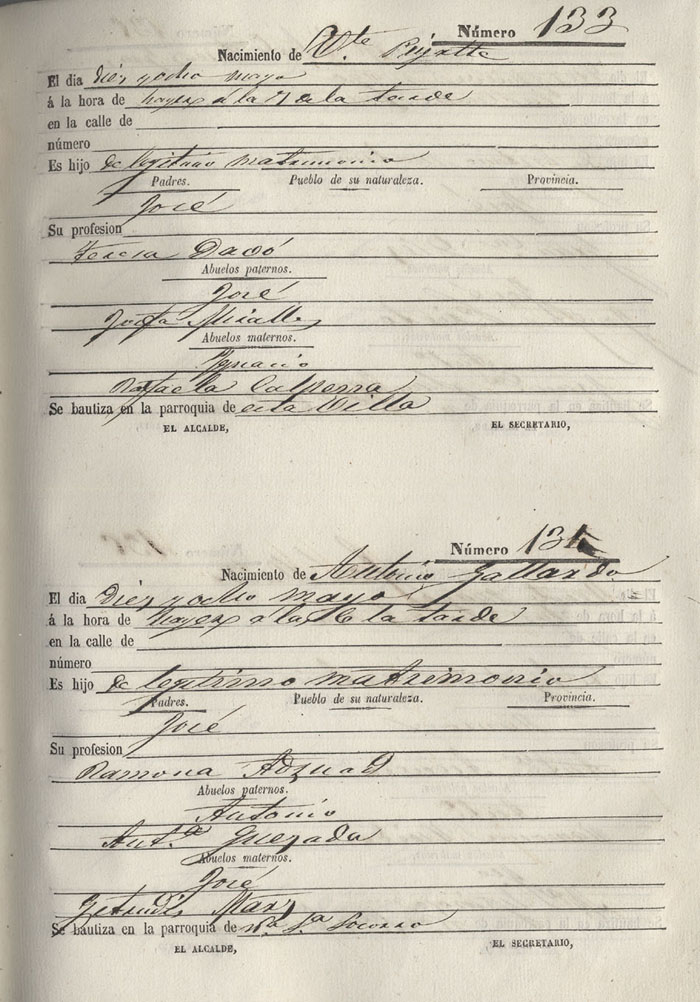 Número 133
Nacimiento de Vte Pujalte
El dia diez y ocho mayo
á la hora de hayer á la 7 de la tarde
en la calle de
número
Es hijo de legitimo matrimonio
Padres. Pueblo de su naturaleza. Provincia.
José
Su profesion
Teresa Davó
Abuelos paternos.
José
Josefa Miralles
Abuelos maternos.
Ygnacio
Rafaela Calpena
Se bautiza en la parroquia de esta Villa
EL ALCALDE, EL SECRETARIO,
Número 134
Nacimiento de Antonio Gallardo
El dia diez y ocho mayo
á la hora de hayer á las 6 la tarde
en la calle de
número
Es hijo de legitimo matrimonio
Padres. Pueblo de su naturaleza. Provincia.
José
Su profesion
Ramona Aznar
Abuelos paternos.
Antonio
Anta Quezada
Abuelos maternos.
José
Getrudis
Se bautiza en la parroquia de Na Sa Socorro
EL ALCALDE, EL SECRETARIO,